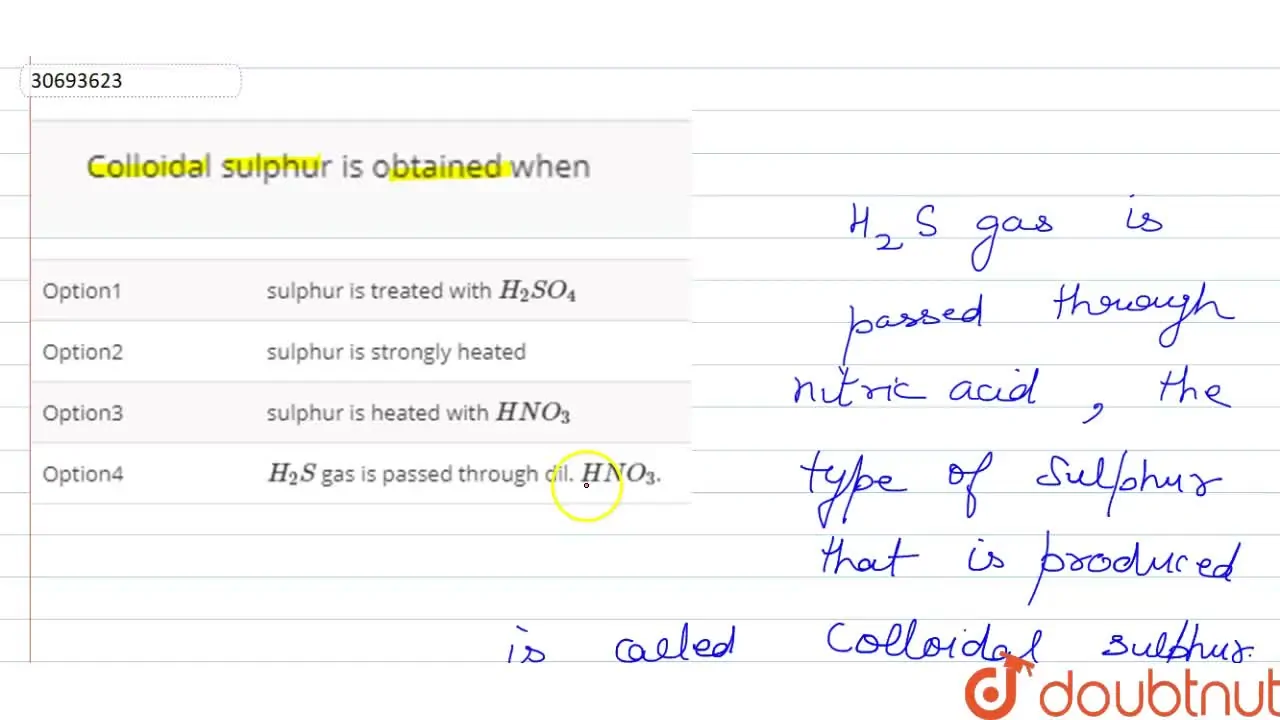 30693623
Colloidal sulphur is obtained when
Option1 sulphur is treated with H₂SO₄
Option2 sulphur is strongly heated
Option3 sulphur is heated with HNO₃
Option4 H₂S gas is passed through dil. HNO₃.
H₂S gas is
passed through
nitric acid, the
type of sulphur
that is produced
is called colloidal sulphur.
doubtnut